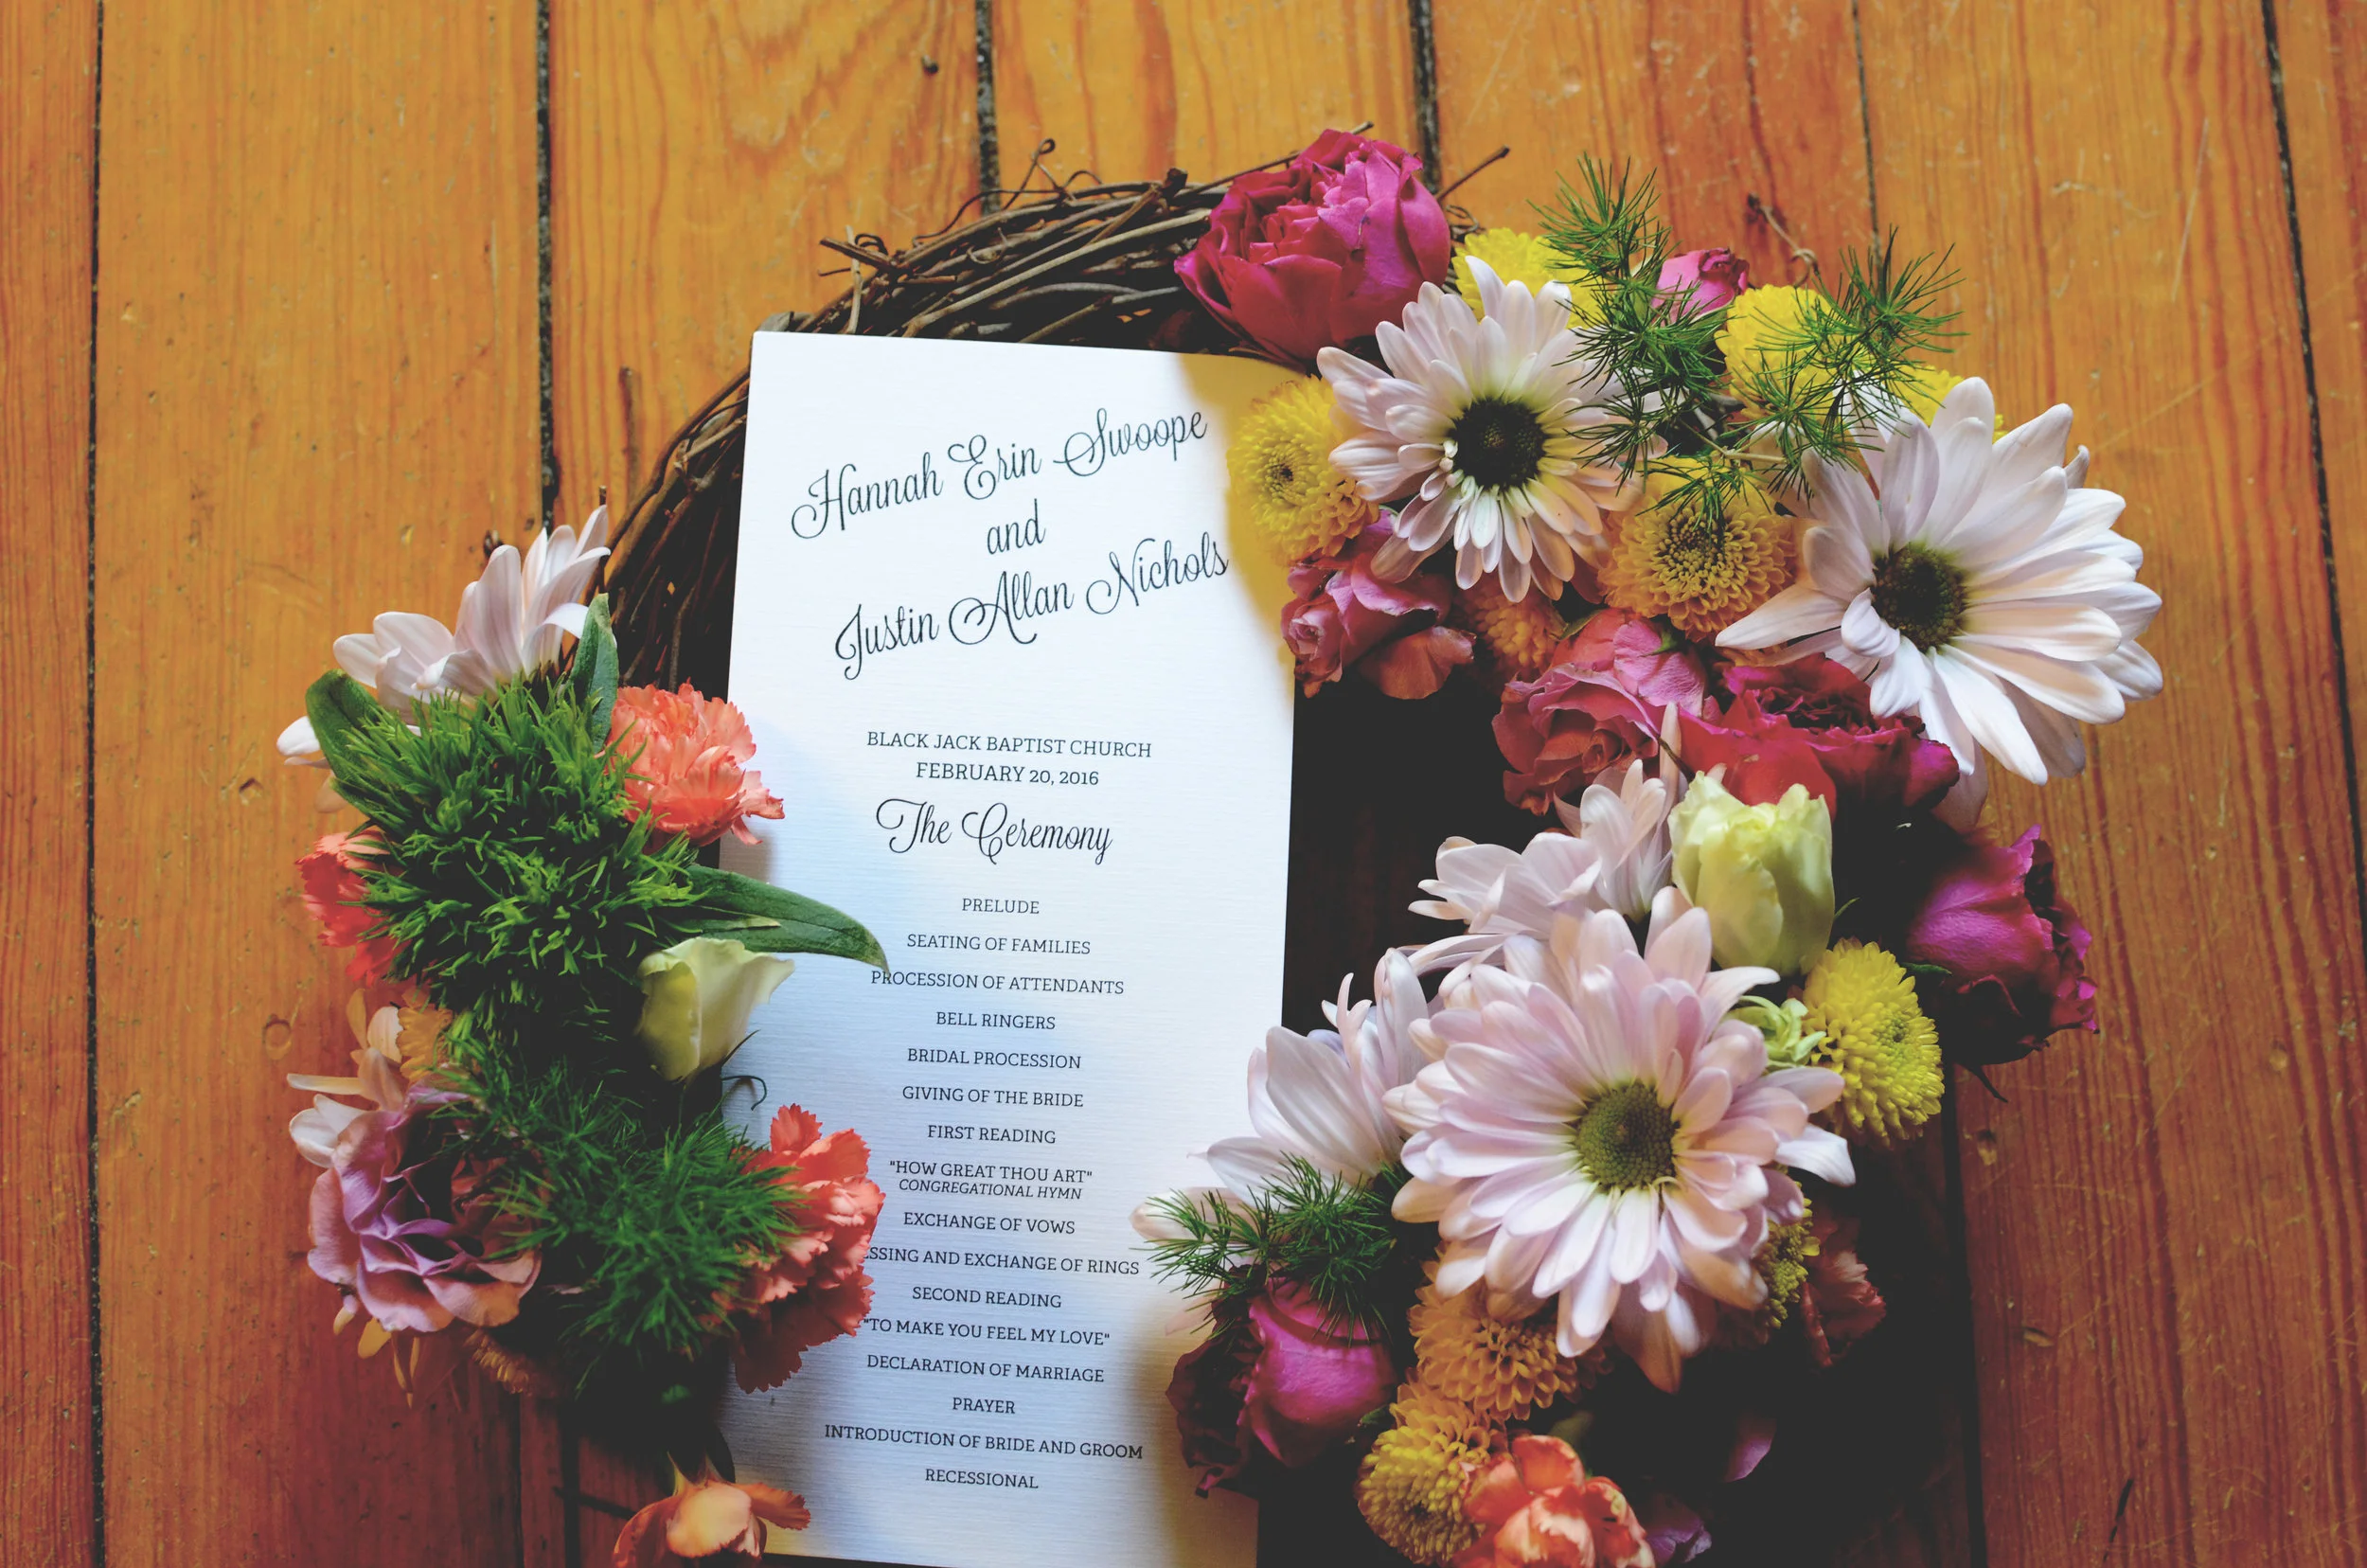 Hannah Erin Swoope
and
Justin Allan Nichols
BLACK JACK BAPTIST CHURCH
FEBRUARY 20, 2016
The Ceremony
PRELUDE
SEATING OF FAMILIES
PROCESSION OF ATTENDANTS
BELL RINGERS
BRIDAL PROCESSION
GIVING OF THE BRIDE
FIRST READING
"HOW GREAT THOU ART"
CONGREGATIONAL HYMN
EXCHANGE OF VOWS
AND EXCHANGE OF RINGS
SECOND READING
"TO MAKE YOU FEEL MY LOVE"
DECLARATION OF MARRIAGE
PRAYER
INTRODUCTION OF BRIDE AND GROOM
RECESSIONAL